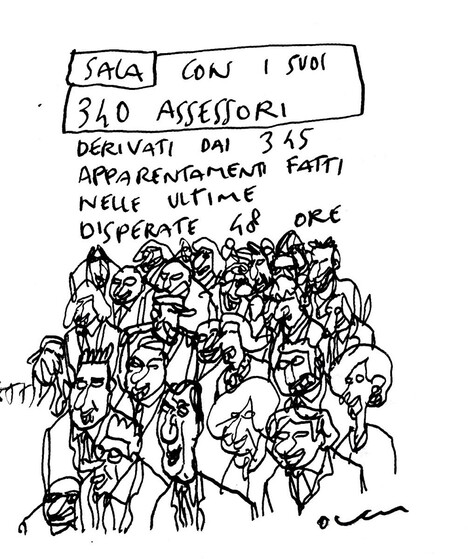 SALA CON I SUOI
340 ASSESSORI
DERIVATI DAI 345
APPARENTAMENTI FATTI
NELLE ULTIME
DISPERATE 48 ORE